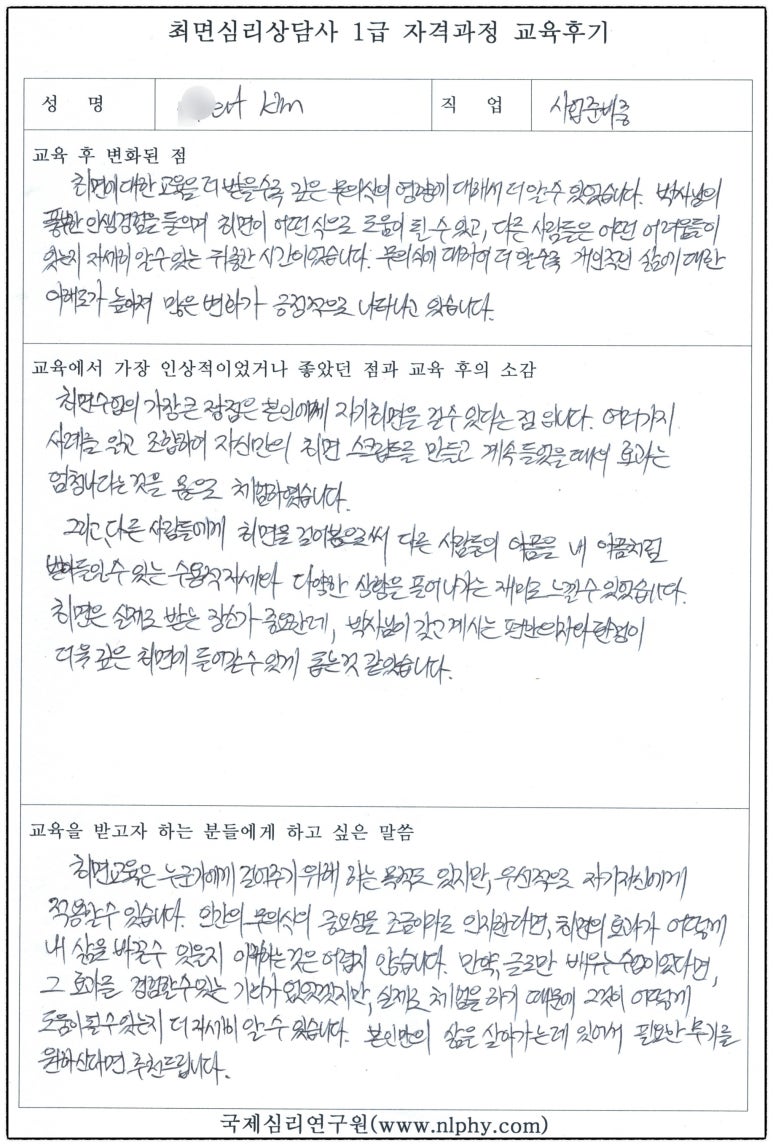 최면심리상담사 1급 자격과정 교육후기
성 명 Kim 직 업 사업준비중
교육 후 변화된 점
최면에 대한 교육을 더 받을수록 깊은 무의식의 영향에 대해서 더 알 수 있었습니다. 박사님의
풍부한 인생경험을 들으며 최면이 어떤 식으로 도움이 될 수 있고, 다른 사람들은 어떤 어려움들이
있는지 자세히 알 수 있는 귀중한 시간이었습니다. 무의식에 대하여 더 알수록 개인적인 삶에 대한
이해도가 높아져 많은 변화가 긍정적으로 나타나고 있습니다.
교육에서 가장 인상적이었거나 좋았던 점과 교육 후의 소감
최면수업의 가장 큰 장점은 본인에게 자기최면을 걸 수 있다는 점 입니다. 여러가지
사례를 읽고 조합하여 자신만의 최면 스크립트를 만들고 계속 들었을 때의 효과는
엄청나다는 것을 몸으로 체험하였습니다.
그리고, 다른 사람들에게 최면을 걸어봄으로써 다른 사람들의 아픔을 내 아픔처럼
받아들일 수 있는 수용적 자세와 다양한 상황을 풀어나가는 재미도 느낄 수 있었습니다.
최면은 실제로 받는 장소가 중요한데, 박사님이 갖고 계시는 편안한 의자와 환경이
더욱 깊은 최면에 들어갈 수 있게 돕는 것 같았습니다.
교육을 받고자 하는 분들에게 하고 싶은 말씀
최면교육은 누군가에게 걸어주기 위해 하는 목적도 있지만, 우선적으로 자기자신에게
적용할 수 있습니다. 인간의 무의식의 중요성을 조금이라도 인지한다면, 최면의 효과가 어떻게
내 삶을 바꿀 수 있을지 이해하는 것은 어렵지 않습니다. 만약, 글로만 배우는 수업이었다면,
그 효과를 경험할 수 있는 기회가 없었겠지만, 실제로 체험을 하기 때문에 그것이 어떻게
도움이 될 수 있는지 더 자세히 알 수 있습니다. 본인만의 삶을 살아가는데 있어서 필요한 무기를
원하신다면 추천드립니다.
국제심리연구원(www.nlphy.com)